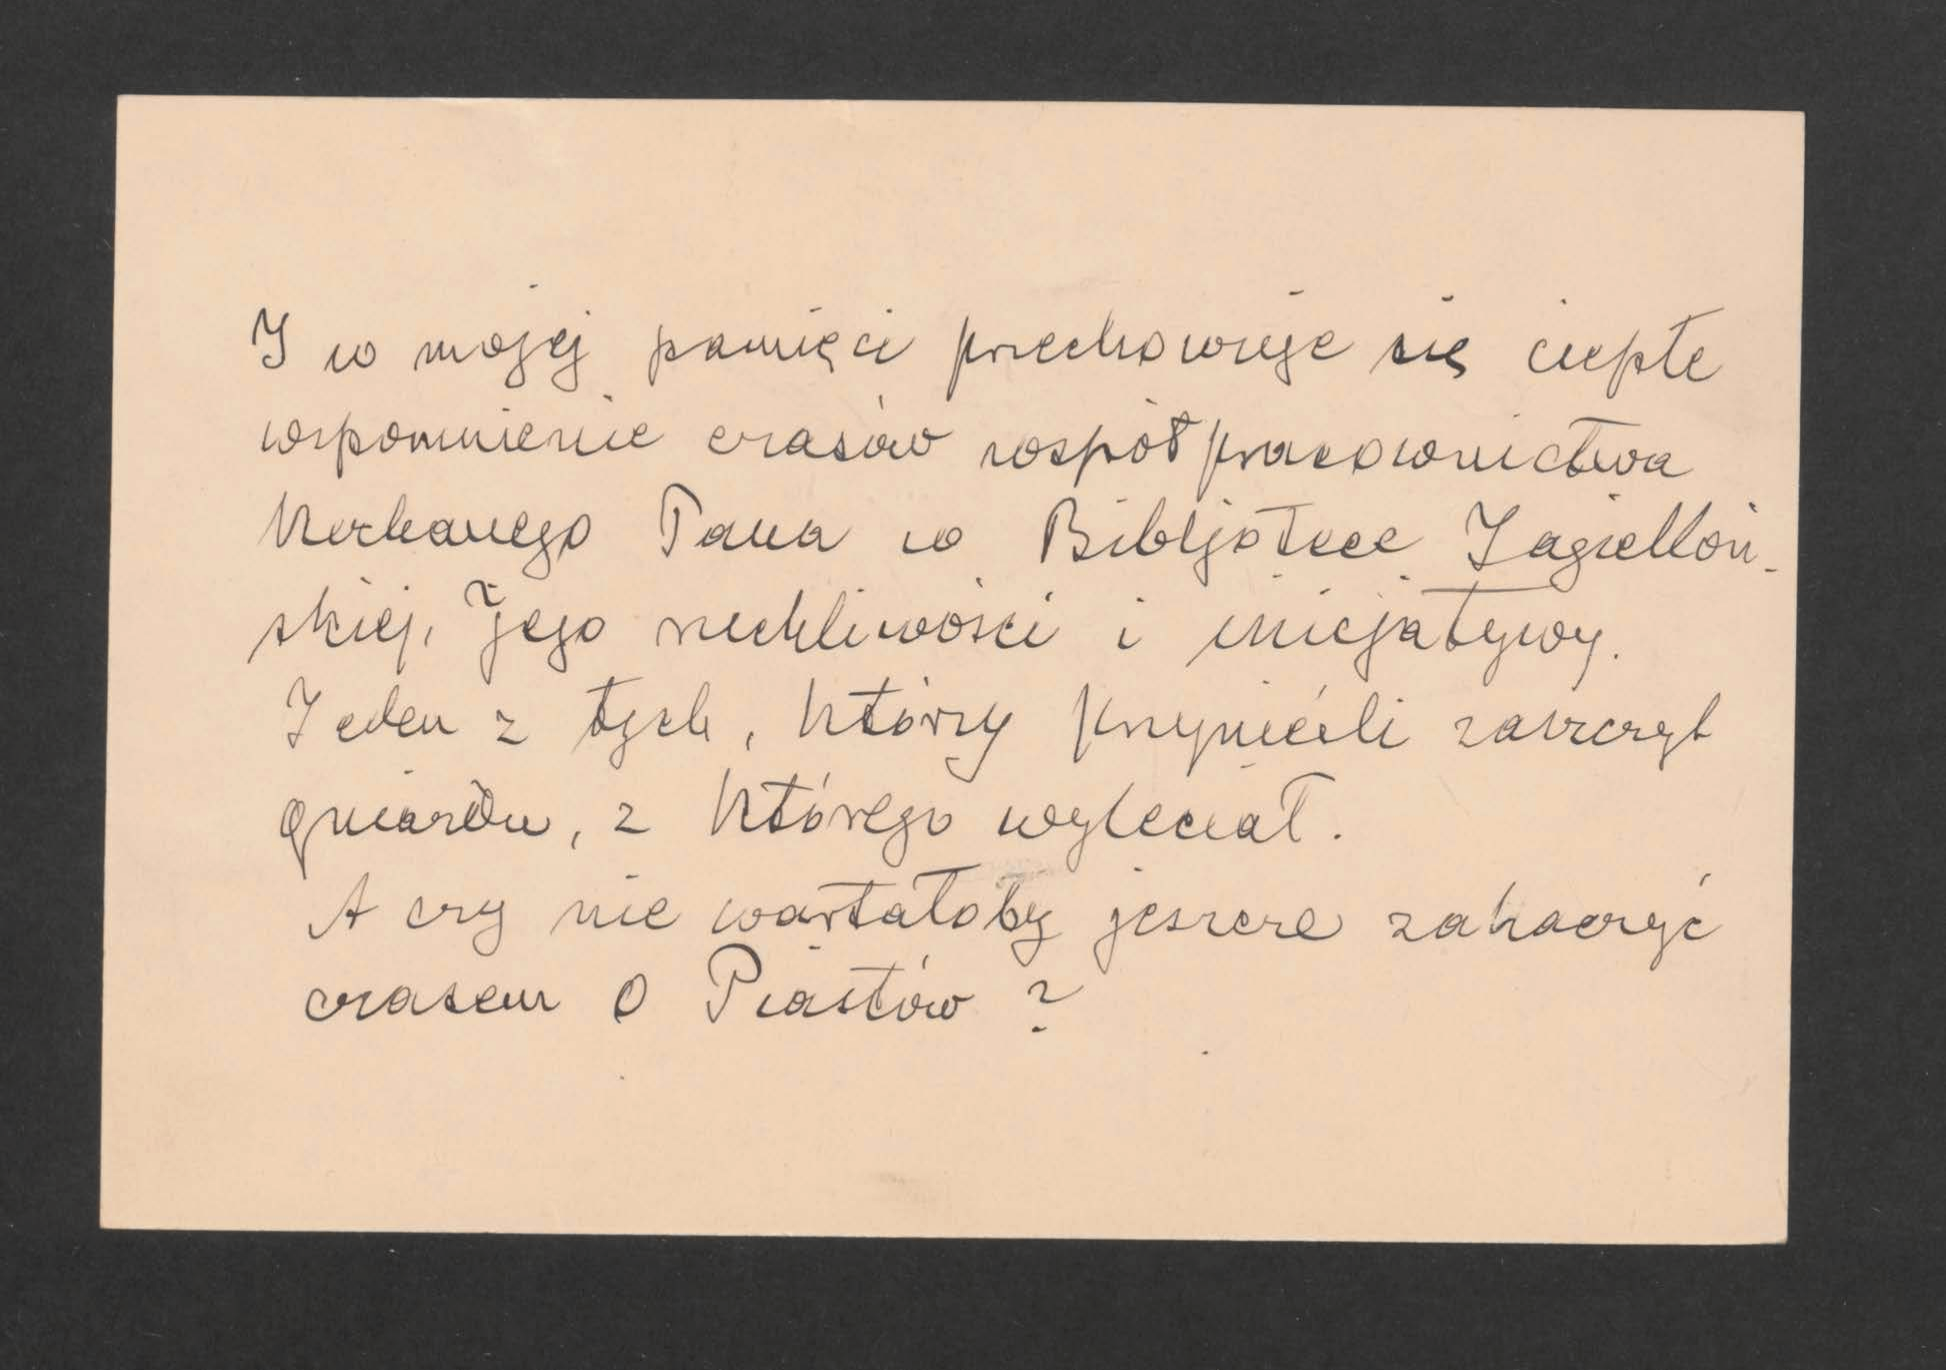 I w mojej pamięci przechowuje się ciepłe
wspomnienie czasów współpracownictwa
Kochanego Pana w Bibljotece Jagielloń-
skiej, Jego ruchliwości i inicjatywy.
Jeden z tych, którzy przynieśli zaszczyt
gniazdu, z którego wyleciał.
A czy nie wartałoby jeszcze zahaczyć
czasem o Piastów?